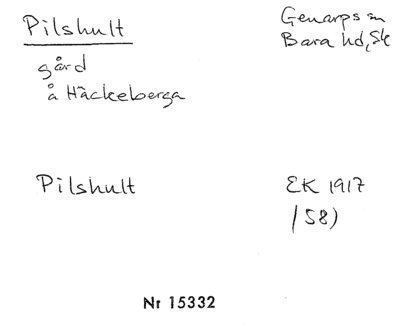 Pilshult
Genarps sn
Bara hd, Sk
gård
å Häckeberga
Pilshult
EK 1917
/58)
Nr 15332